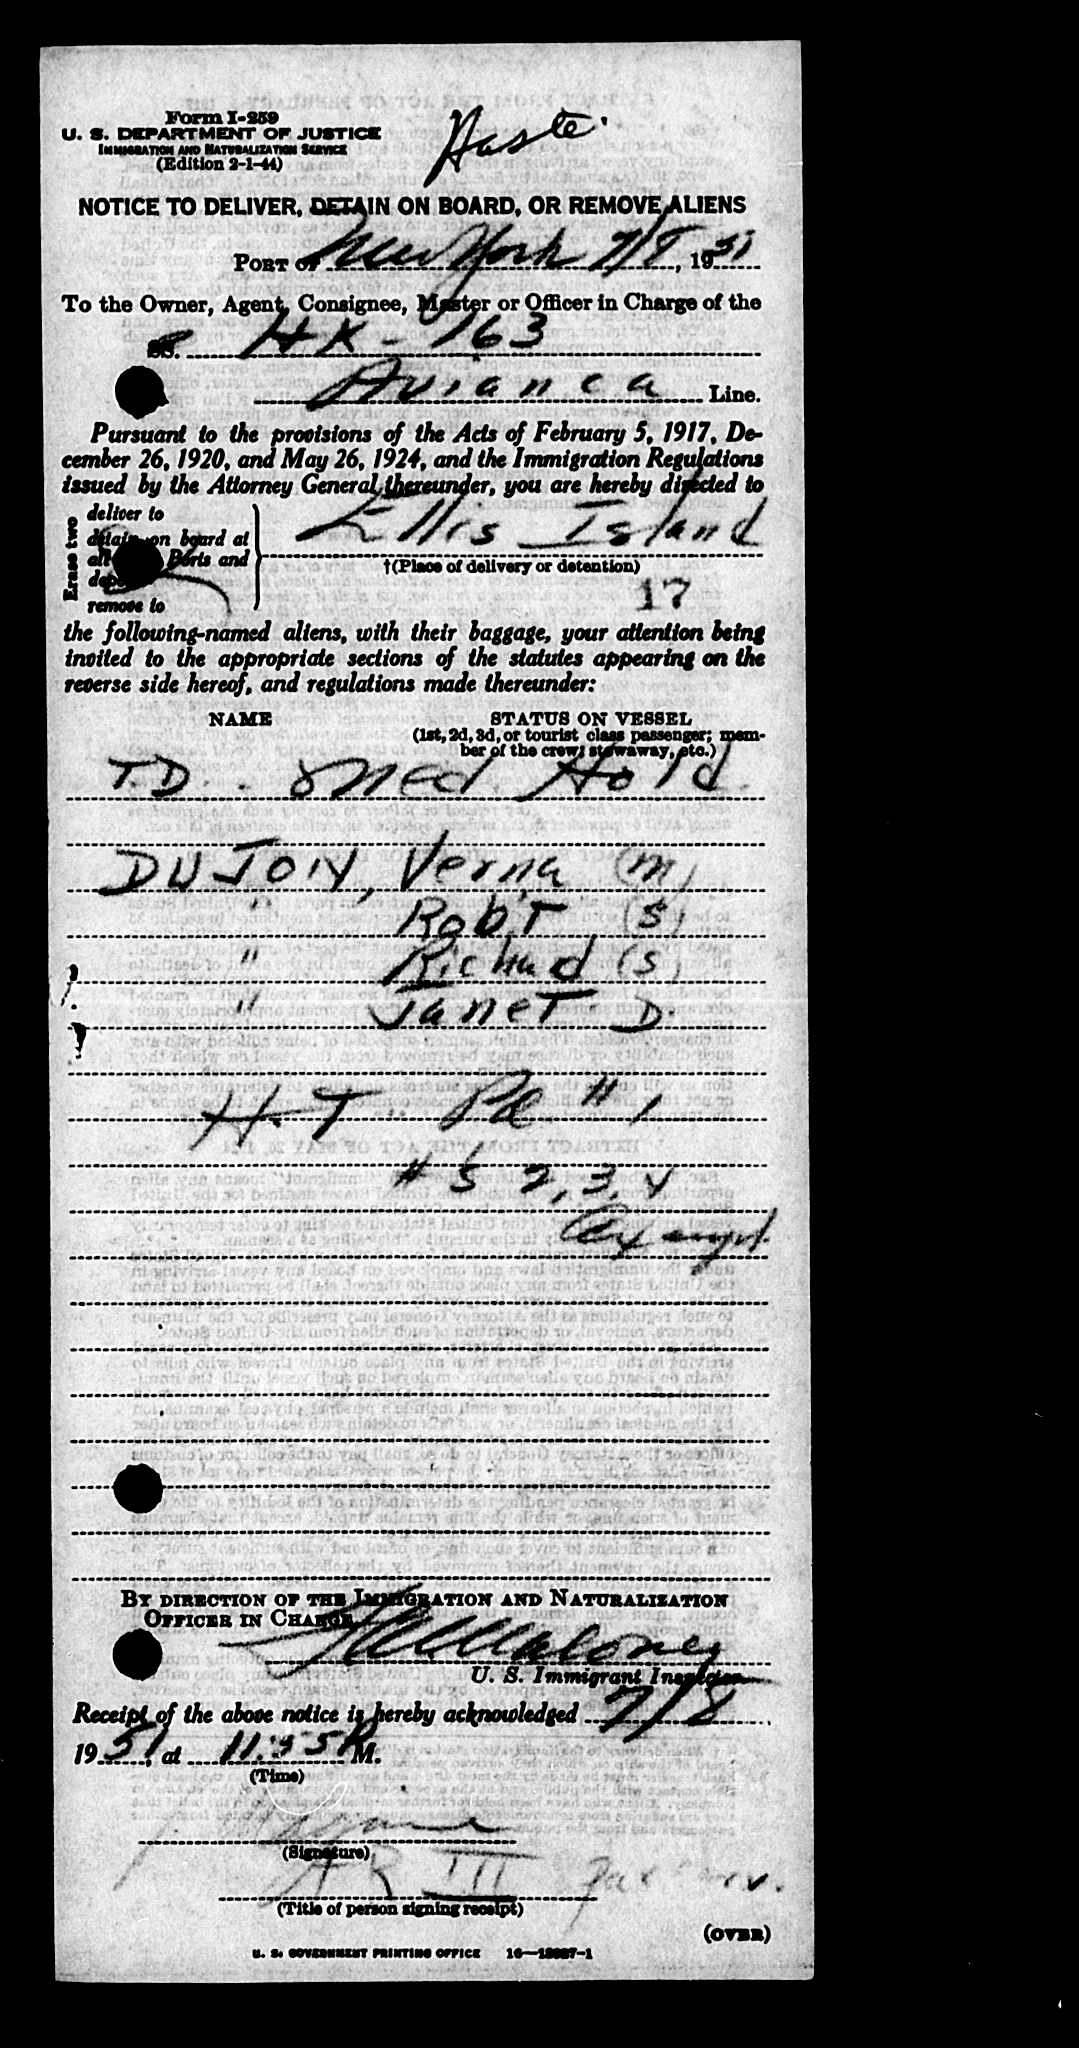 Form I-259
U. S. DEPARTMENT OF JUSTICE
IMMIGRATION AND NATURALIZATION SERVICE
(Edition 2-1-44)
Haste.
NOTICE TO DELIVER, DETAIN ON BOARD, OR REMOVE ALIENS
PORT OF New York 7/8, 1951
To the Owner, Agent, Consignee, Master or Officer in Charge of the
SS. HK - 763
Avianca Line.
Pursuant to the provisions of the Acts of February 5, 1917, De-
cember 26, 1920, and May 26, 1924, and the Immigration Regulations
issued by the Attorney General thereunder, you are hereby directed to
Erase two
deliver to
detain on board at
all Ports and
remove to
Ellis Island
†(Place of delivery or detention)
17
the following-named aliens, with their baggage, your attention being
invited to the appropriate sections of the statutes appearing on the
reverse side hereof, and regulations made thereunder:
NAME STATUS ON VESSEL
(1st, 2d, 3d, or tourist class passenger; mem-
ber of the crew; stowaway, etc.)
T.D. - Med. Hold.
DUJON, Verna (m)
" Rob't (s)
" Richard (s)
" Janet D.
H.T Pd # 1
#s 2, 3, 4
Exempt.
BY DIRECTION OF THE IMMIGRATION AND NATURALIZATION
OFFICER IN CHARGE
Maloney
U. S. Immigrant Inspector
Receipt of the above notice is hereby acknowledged 7/8
1951, at 11:55 P M.
(Time)
(Signature)
(Title of person signing receipt)
(OVER)
U. S. GOVERNMENT PRINTING OFFICE 16—13927-1